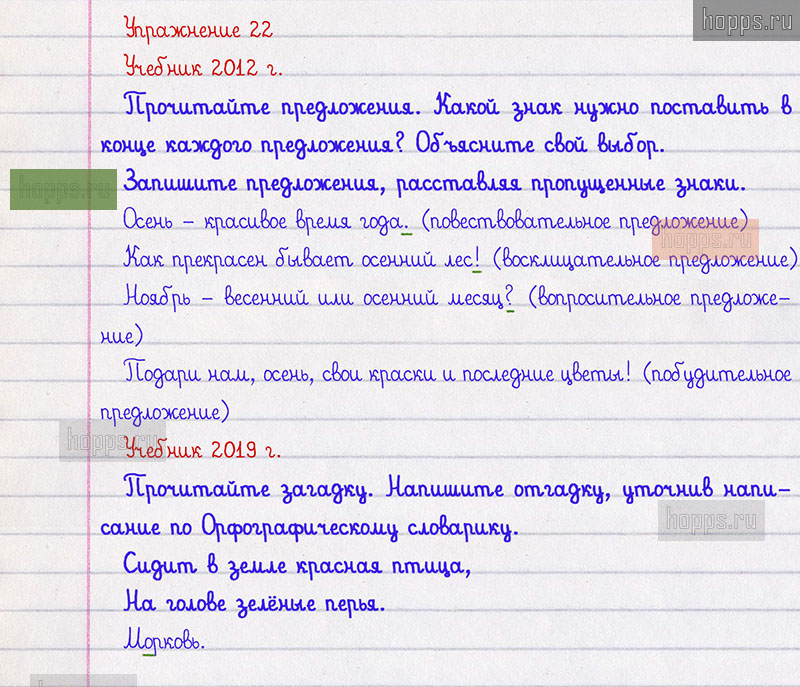 hopps.ru
Упражнение 22
Учебник 2012 г.
Прочитайте предложения. Какой знак нужно поставить в
конце каждого предложения? Объясните свой выбор.
hopps.ru
Запишите предложения, расставляя пропущенные знаки.
Осень – красивое время года. (повествовательное предложение)
hopps.ru
Как прекрасен бывает осенний лес! (восклицательное предложение)
Ноябрь – весенний или осенний месяц? (вопросительное предложе-
ние)
Подари нам, осень, свои краски и последние цветы! (побудительное
предложение)
hopps.ru
Учебник 2019 г.
Прочитайте загадку. Напишите отгадку, уточнив напи-
сание по Орфографическому словарику.
hopps.ru
Сидит в земле красная птица,
На голове зелёные перья.
Морковь.